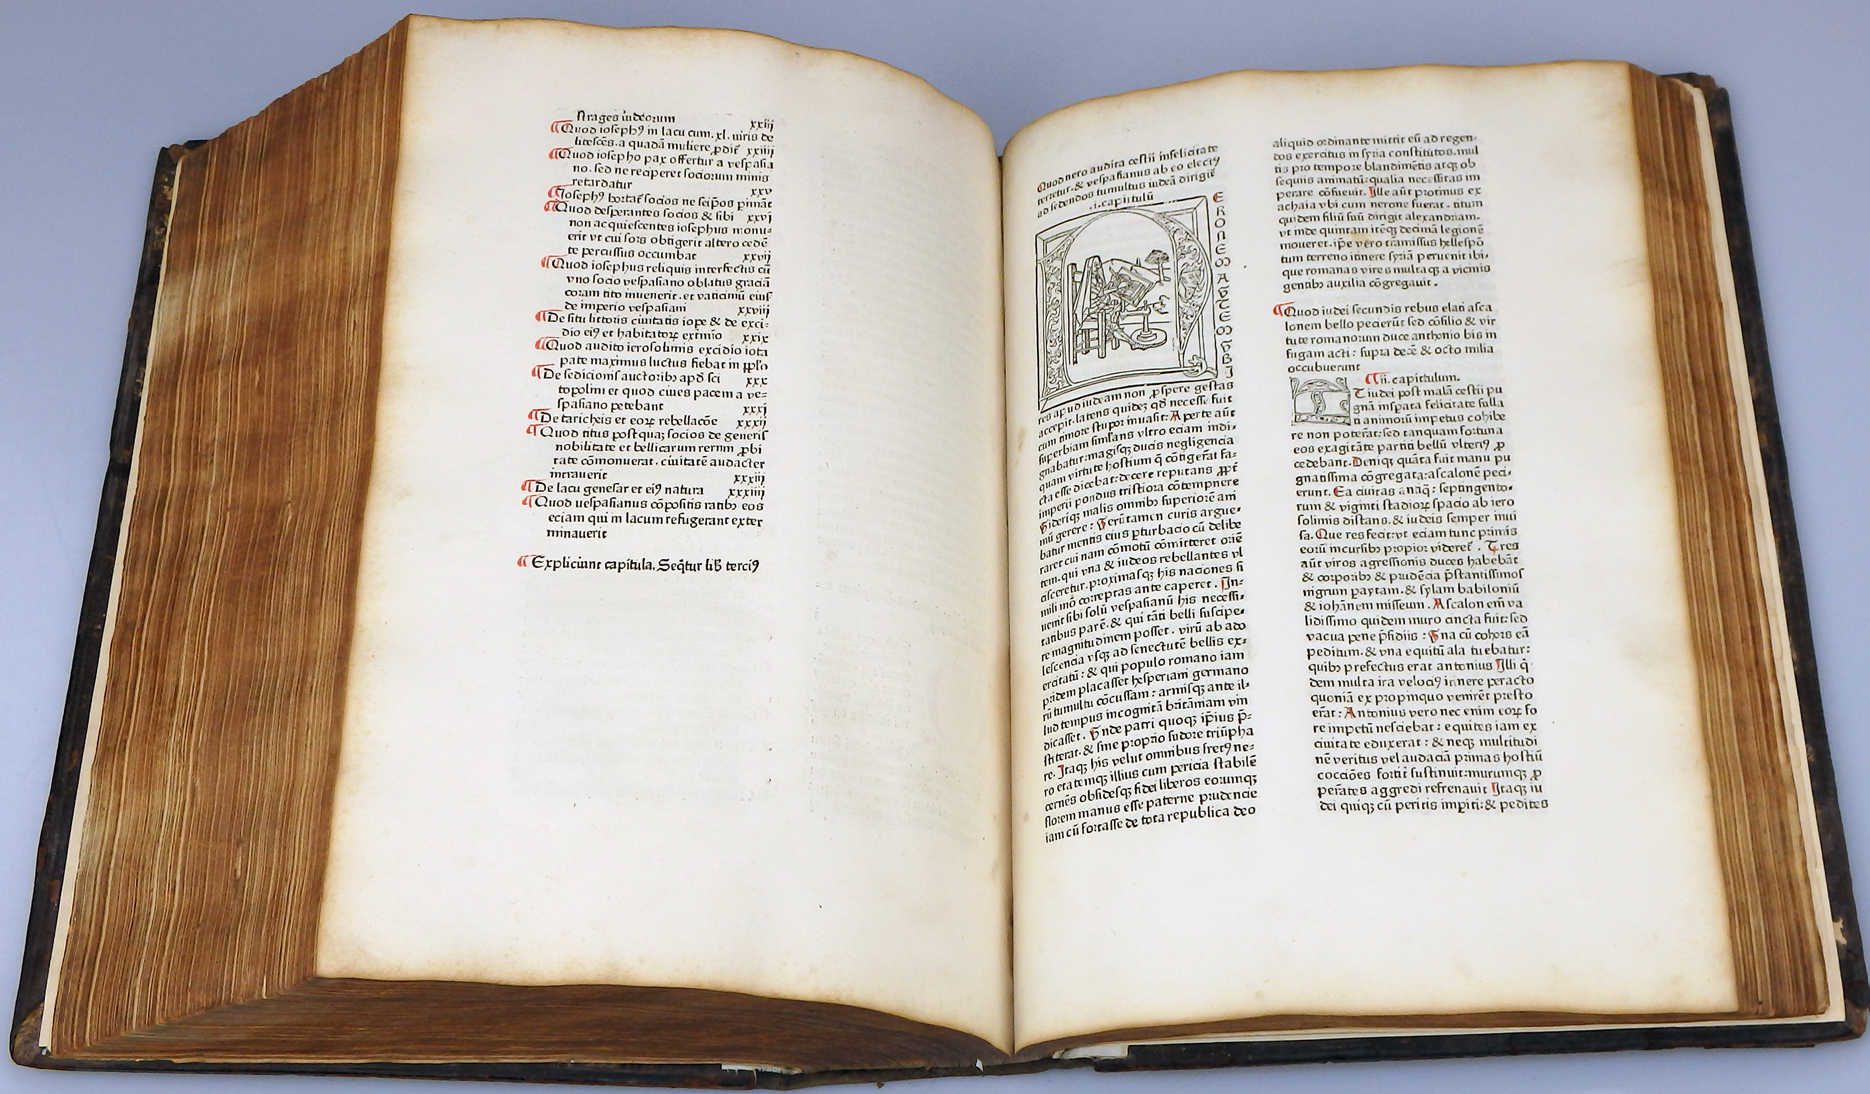 strages iudeorum xxiii
¶Quod ioseph9 in lacu cum .xl. viris de
litescēs. a quadā muliere ꝓdit᷑ xxiiii
¶Quod iosepho pax offertur a vespasia
no. sed ne reciperet sociorum minis
retardatur xxv
¶Joseph9 hortat᷑ socios ne seip̄os pimāt
¶Quod desperantes socios & sibi xxvi
non acquiescentes iosephus monu-
erit vt cui sors obtigerit altero cedē
te percussus occumbat xxvij
¶Quod iosephus reliquis interfectis cū
vno socio vespasiano oblatus graciā
coram tito inuenerit. et vaticiniū eius
de imperio vespasiani xxviii
¶De situ littoris ciuitatis iope & de exci-
dio ei9 et habitatoꝝ eximio xxix
¶Quod audito ierosolimis excidio iota
pate maximus luctus fiebat in ꝓp̄lo
¶De sedicionis auctoribꝫ apd̄ sci xxx
topolim et quod ciues pacem a ve-
spasiano petebant xxxi
¶De taricheis et eoꝝ rebellacōe xxxij
¶Quod titus postquaꝫ socios de generis
nobilitate et bellicarum rerum ꝓbi
tate cōmonuerat. ciuitatē audacter
intrauerit xxxiii
¶De lacu genesar et ei9 natura xxxiiij
¶Quod vespasianus cōpositis ratibꝫ eos
eciam qui in lacum refugerant exter
minauerit
¶Expliciunt capitula. Seq̄tur lib̄ terci9
Quod nero audita cestii infelicitate
terretur. & vespasianus ab eo electꝰ
ad sedendos tumultus iudeā dirigit᷑
.i. capitulū
ERONEM AVTEM VBI
res apud iudeam non ꝓspere gestas
accepit. latens quideꝫ qd̄ necesse fuit
cum timore stupor inuasit: Aperte aūt
superbiam simlans vltro eciam indi-
gnabatur: magisqꝫ ducis negligencia
quam virtute hostium q̄ cōtigerāt fa-
cta esse dicebat: decere reputans ꝓpt᷑
imperii pondus tristiora cōtempnere
Videriqꝫ malis omnibꝫ superiorē ani
mū gerere: Verūtamen curis argue-
batur mentis eius ꝑturbacio cū delibe
raret cui nam cōmotū cōmitteret oriē
tem. qui vna & iudeos rebellantes vl
cisceretur. proximasqꝫ his naciones si
mili mō correptas ante caperet. In-
uenit sibi solū vespasianū his necessi-
tatibus parē. & qui tāti belli suscipe-
re magnitudinem posset. virū ab ado
lescencia vsqꝫ ad senectutē bellis ex-
ercitatū: & qui populo romano iam
pridem placasset hesperiam germano
rū tumultu cōcussam: armisqꝫ ante il-
lud tempus incognitā britāniam vin
dicasset. Vnde patri quoqꝫ ip̄ius p̄-
stiterat. & sine proprio sudore triūpha
re. Itaqꝫ his velut omnibus fretꝰ ne-
ro etatemqꝫ illius cum pericia stabilē
cernēs obsidesqꝫ fidei liberos eorumqꝫ
florem manus esse paterne prudencie
iam cū fortasse de tota republica deo
aliquid ordinante mittit eū ad regen-
dos exercitus in syria constitutos. mul
tis pro tempore blandimētis atqꝫ ob
sequiis animatū: qualia necessitas im
perare cōsueuit. Ille aūt protinus ex
achaia vbi cum nerone fuerat. titum
quidem filiū suū dirigit alexandriam.
vt inde quintam itēqꝫ decimā legionē
moueret. ip̄e vero trāmissus hellespō
tum terreno itinere syriā peruenit ibi-
que romanas vires multaqꝫ a vicinis
gentibꝫ auxilia cōgregauit.
¶Quod iudei secundis rebus elati asca
lonem bello pecierūt sed cōsilio & vir
tute romanorum duce anthonio bis in
fugam acti: supra decē & octo milia
occubuerunt
¶ii. capitulum.
Tiudei post malā cestii pu
gnā insperata felicitate sulla
ti animorū impetus cohibe
re non poterāt: sed tanquam fortuna
eos exagitāte partiti bellū vlteriꝰ ꝓ
cedebant. Deniqꝫ quāta fuit manu pu
gnatissima cōgregata: ascalonē peci-
erunt. Ea ciuitas antiq̄: septingento-
rum & viginti stadioꝝ spacio ab iero
solimis distans. & iudeis semper inui
sa. Que res fecit: vt eciam tunc primis
eorū incursibꝫ propior videret᷑. Tres
aūt viros agressionis duces habebāt
& corporibꝫ & prudēcia p̄stantissimos
nigrum paytam. & sylam babiloniū
& iohānem misseum. Ascalon em̄ va
lidissimo quidem muro cincta fuit: sed
vacua pene p̄sidiis: Vna cū cohors eā
peditum. & vna equitū ala tuebatur:
quibꝫ prefectus erat antonius Illi q̄
dem multa ira velociꝰ itinere peracto
quoniā ex propinquo venirēt presto
erāt: Antonius vero nec enim eoꝝ fo
re impetū nesciebat: equites iam ex
ciuitate eduxerat: & neqꝫ multitudi
nē veritus vel audaciā primas hostiū
cocciōes fortit᷑ sustinuit: murumqꝫ ꝓ
perātes aggredi refrenauit Itaqꝫ iu
dei quiqꝫ cū peritis imꝑiti: & pedites